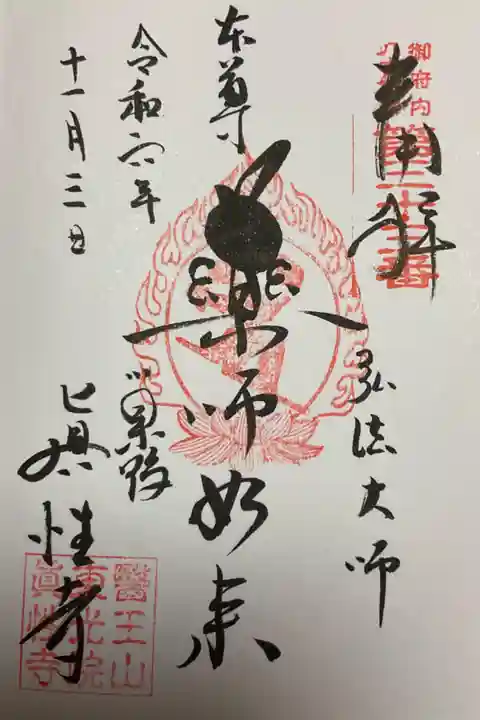 奉拝
御府内
第三十三番
弘法大師
本尊
薬師如来
令和六年
十一月三日
真性寺
醫王山
東光院
眞性寺